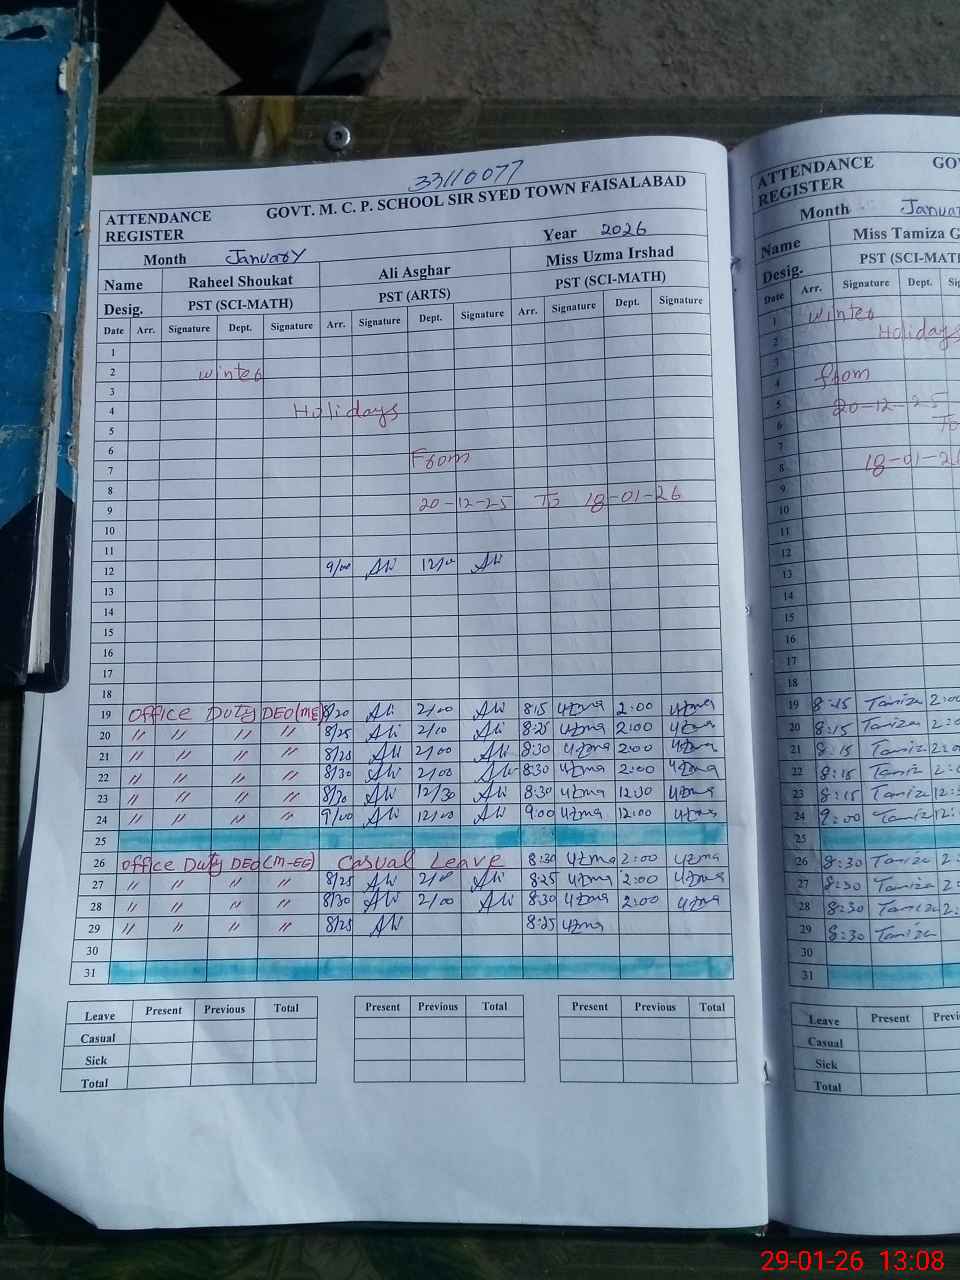 33110077
ATTENDANCE REGISTER GOVT. M. C. P. SCHOOL SIR SYED TOWN FAISALABAD
Month January Year 2026
Name Raheel Shoukat Ali Asghar Miss Uzma Irshad
Desig. PST (SCI-MATH) PST (ARTS) PST (SCI-MATH)
Date Arr. Signature Dept. Signature Arr. Signature Dept. Signature Arr. Signature Dept. Signature
1
2 Winter
3
4 Holidays
5
6 From
7
8
9 20-12-25 To 18-01-26
10
11
12 9/00 Ali 12/00 Ali
13
14
15
16
17
18
19 Office Duty DEO(ME) 8/20 Ali 2/00 Ali 8:15 Uzma 2:00 Uzma
20 〃 〃 〃 〃 8/25 Ali 2/00 Ali 8:25 Uzma 2:00 Uzma
21 〃 〃 〃 〃 8/25 Ali 2/00 Ali 8:30 Uzma 2:00 Uzma
22 〃 〃 〃 〃 8/30 Ali 2/00 Ali 8:30 Uzma 2:00 Uzma
23 〃 〃 〃 〃 8/30 Ali 12/30 Ali 8:30 Uzma 12:30 Uzma
24 〃 〃 〃 〃 9/00 Ali 12/00 Ali 9:00 Uzma 12:00 Uzma
25
26 Office Duty DEO(M-EE) Casual Leave 8:30 Uzma 2:00 Uzma
27 〃 〃 〃 〃 8/25 Ali 2/00 Ali 8:25 Uzma 2:00 Uzma
28 〃 〃 〃 〃 8/30 Ali 2/00 Ali 8:30 Uzma 2:00 Uzma
29 〃 〃 〃 〃 8/25 Ali 8:25 Uzma
30
31
Leave Present Previous Total Present Previous Total Present Previous Total
Casual
Sick
Total
ATTENDANCE REGISTER
Month
Name Miss Tamiza
Desig.
Date Arr. Signature Dept. Signature
1 Winter
2 Holidays
3
4 From
5 20-12-25
6 To
7
8 18-01-26
9
10
11
12
13
14
15
16
17
18
19 8:15 Tamiza
20 8:15 Tamiza
21 8:15 Tamiza
22 8:15 Tamiza
23 8:15 Tamiza
24 9:00 Tamiza
25
26 8:30 Tamiza
27 8:30 Tamiza
28 8:30 Tamiza
29 8:30 Tamiza
30
31
Leave Present
Casual
Sick
Total
29-01-26 13:08